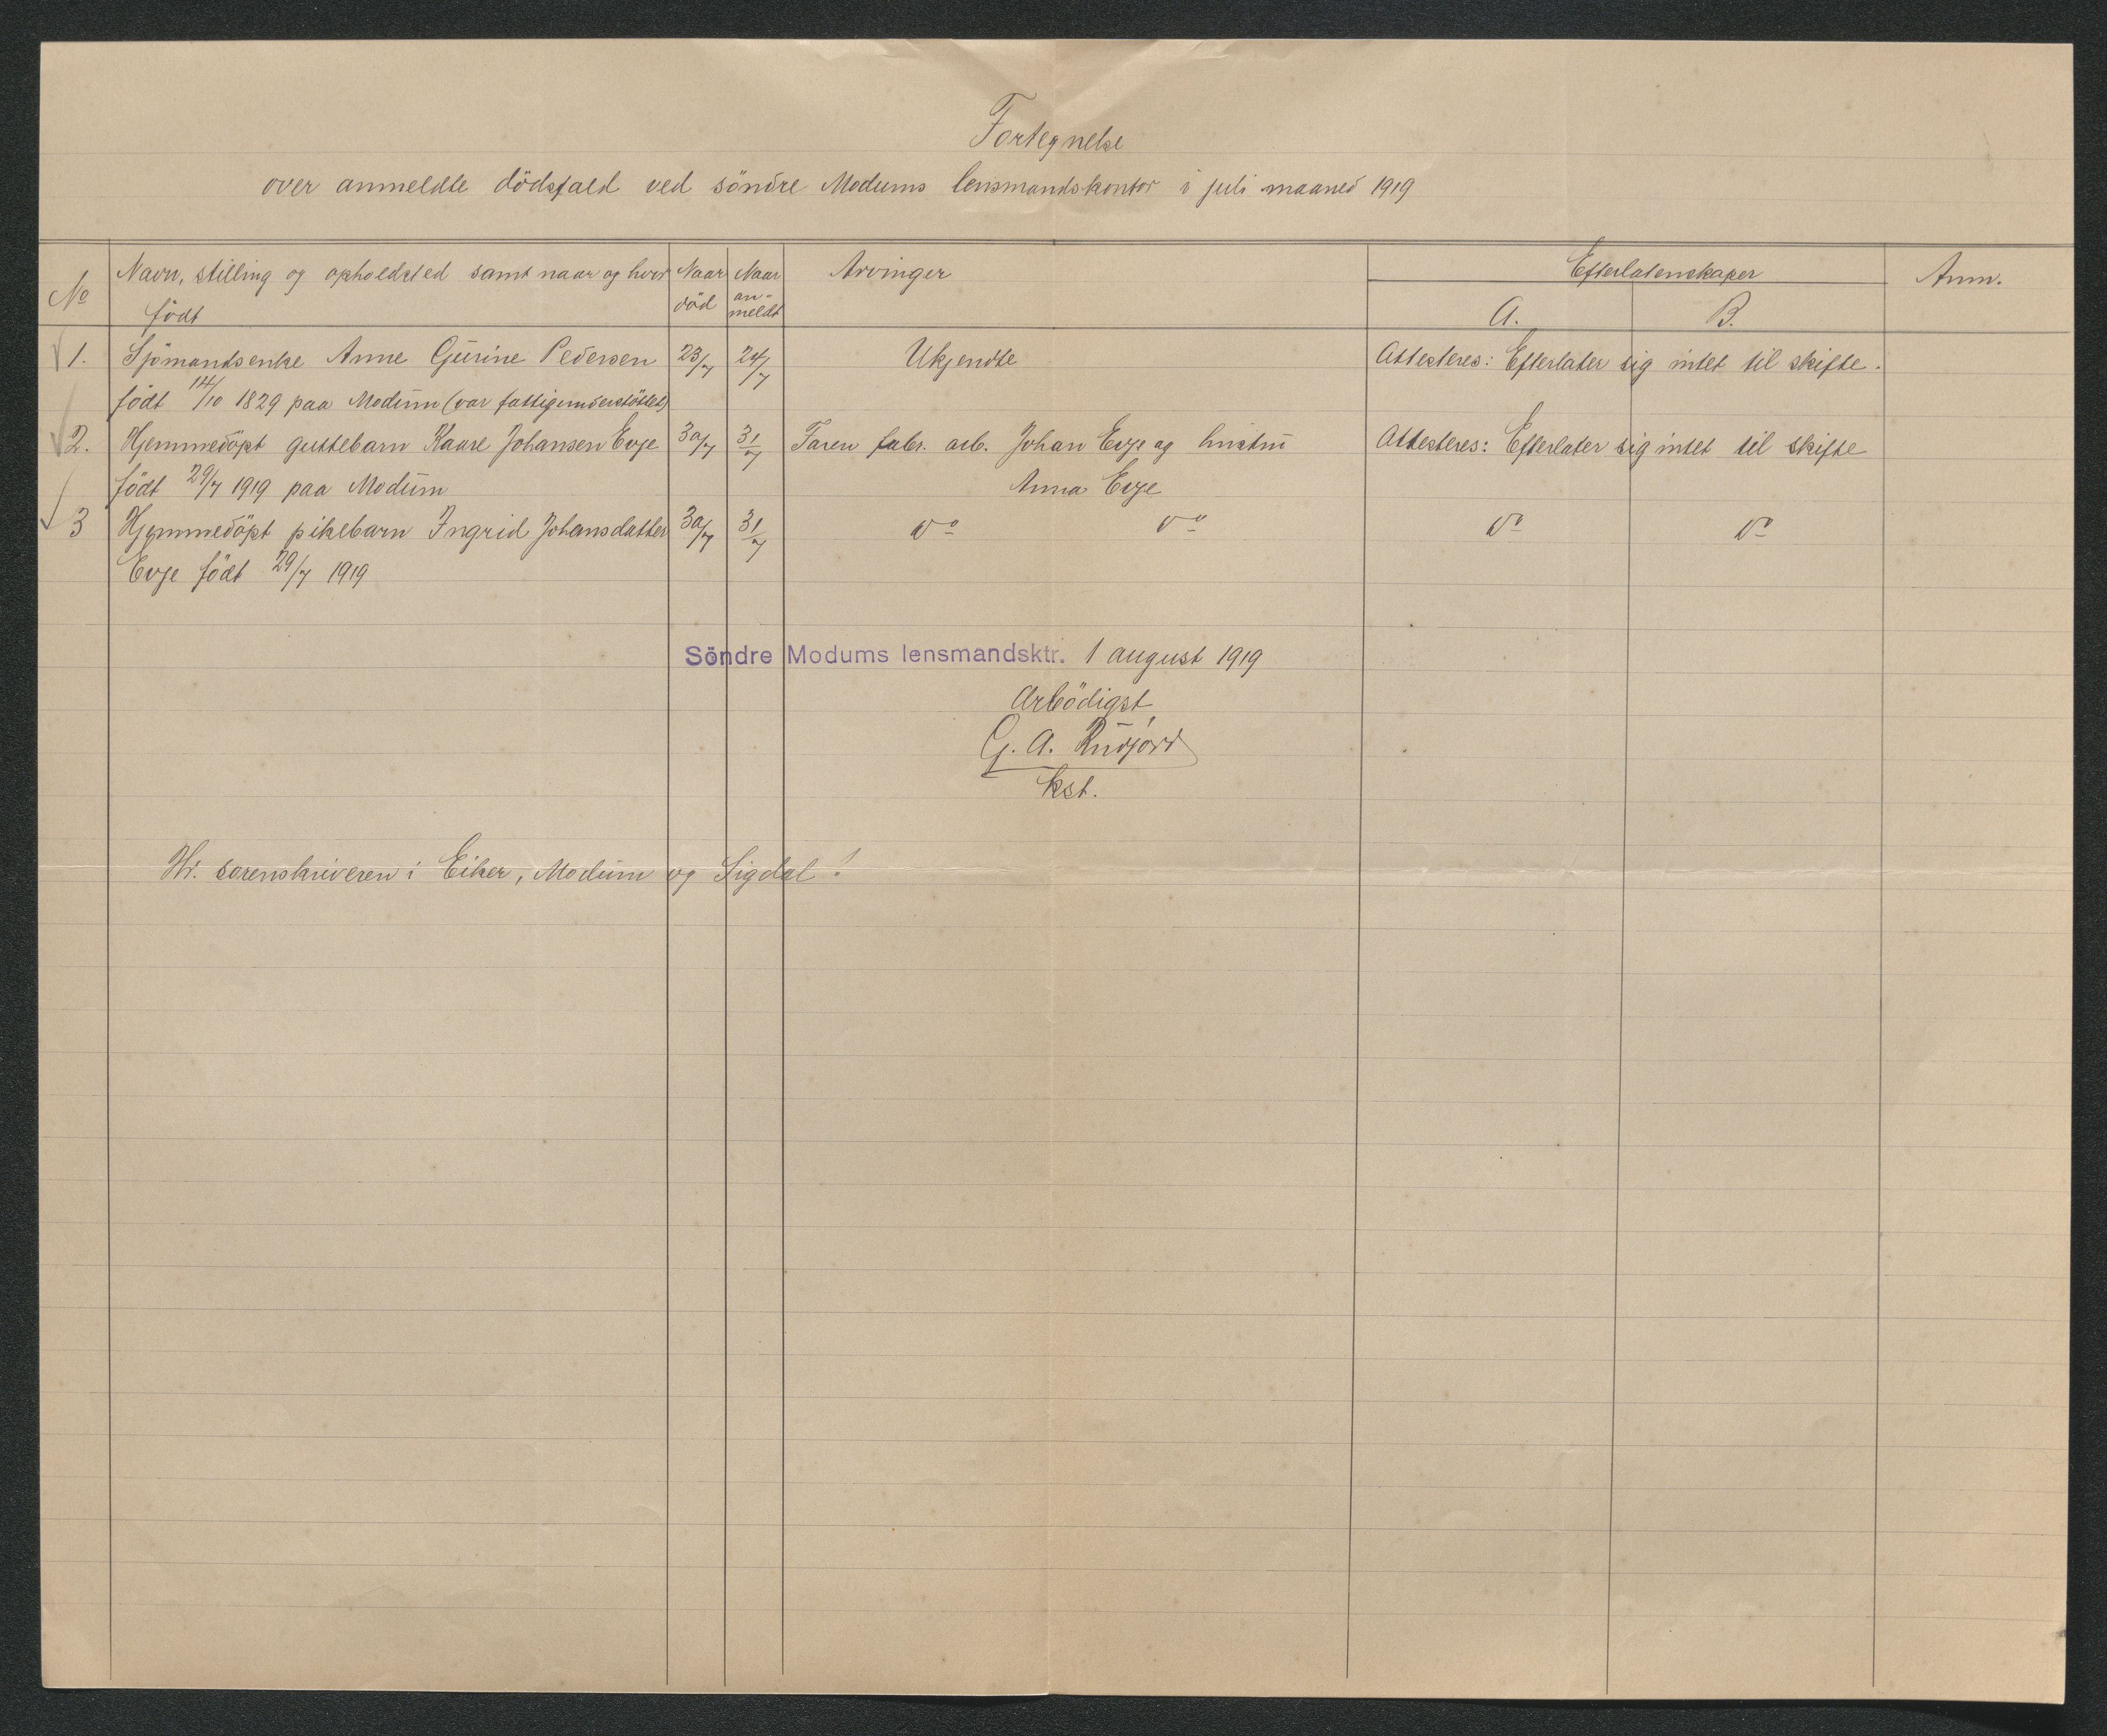 Fortegnelse
over anmeldte dödsfald ved söndre Modums lensmandskontor i juli maaned 1919
No
Navn, stilling og opholdssted samt naar og hvor
födt
Naar
död
Naar
an-
meldt
Arvinger
Efterlatenskaper
A.
B.
Anm.
1. Sjömandsenke Anne Gurine Pedersen 23/7 24/7 Ukjendte Attesteres: Efterlater sig intet til skifte.
födt 14/10 1829 paa Modum (var fattigunderstöttet)
2. Hjemmedöpt guttebarn Kaare Johansen Evje 30/7 31/7 Faren fabr. arb. Johan Evje og hustru Attesteres: Efterlater sig intet til skifte
födt 29/7 1919 paa Modum Anna Evje
3 Hjemmedöpt pikebarn Ingrid Johansdatter 30/7 31/7 do do do do
Evje födt 29/7 1919
Söndre Modums lensmandsktr. 1 august 1919
Ærbödigst
G. A. Rudjord
kst.
Hr. sorenskriveren i Eiker, Modum og Sigdal!